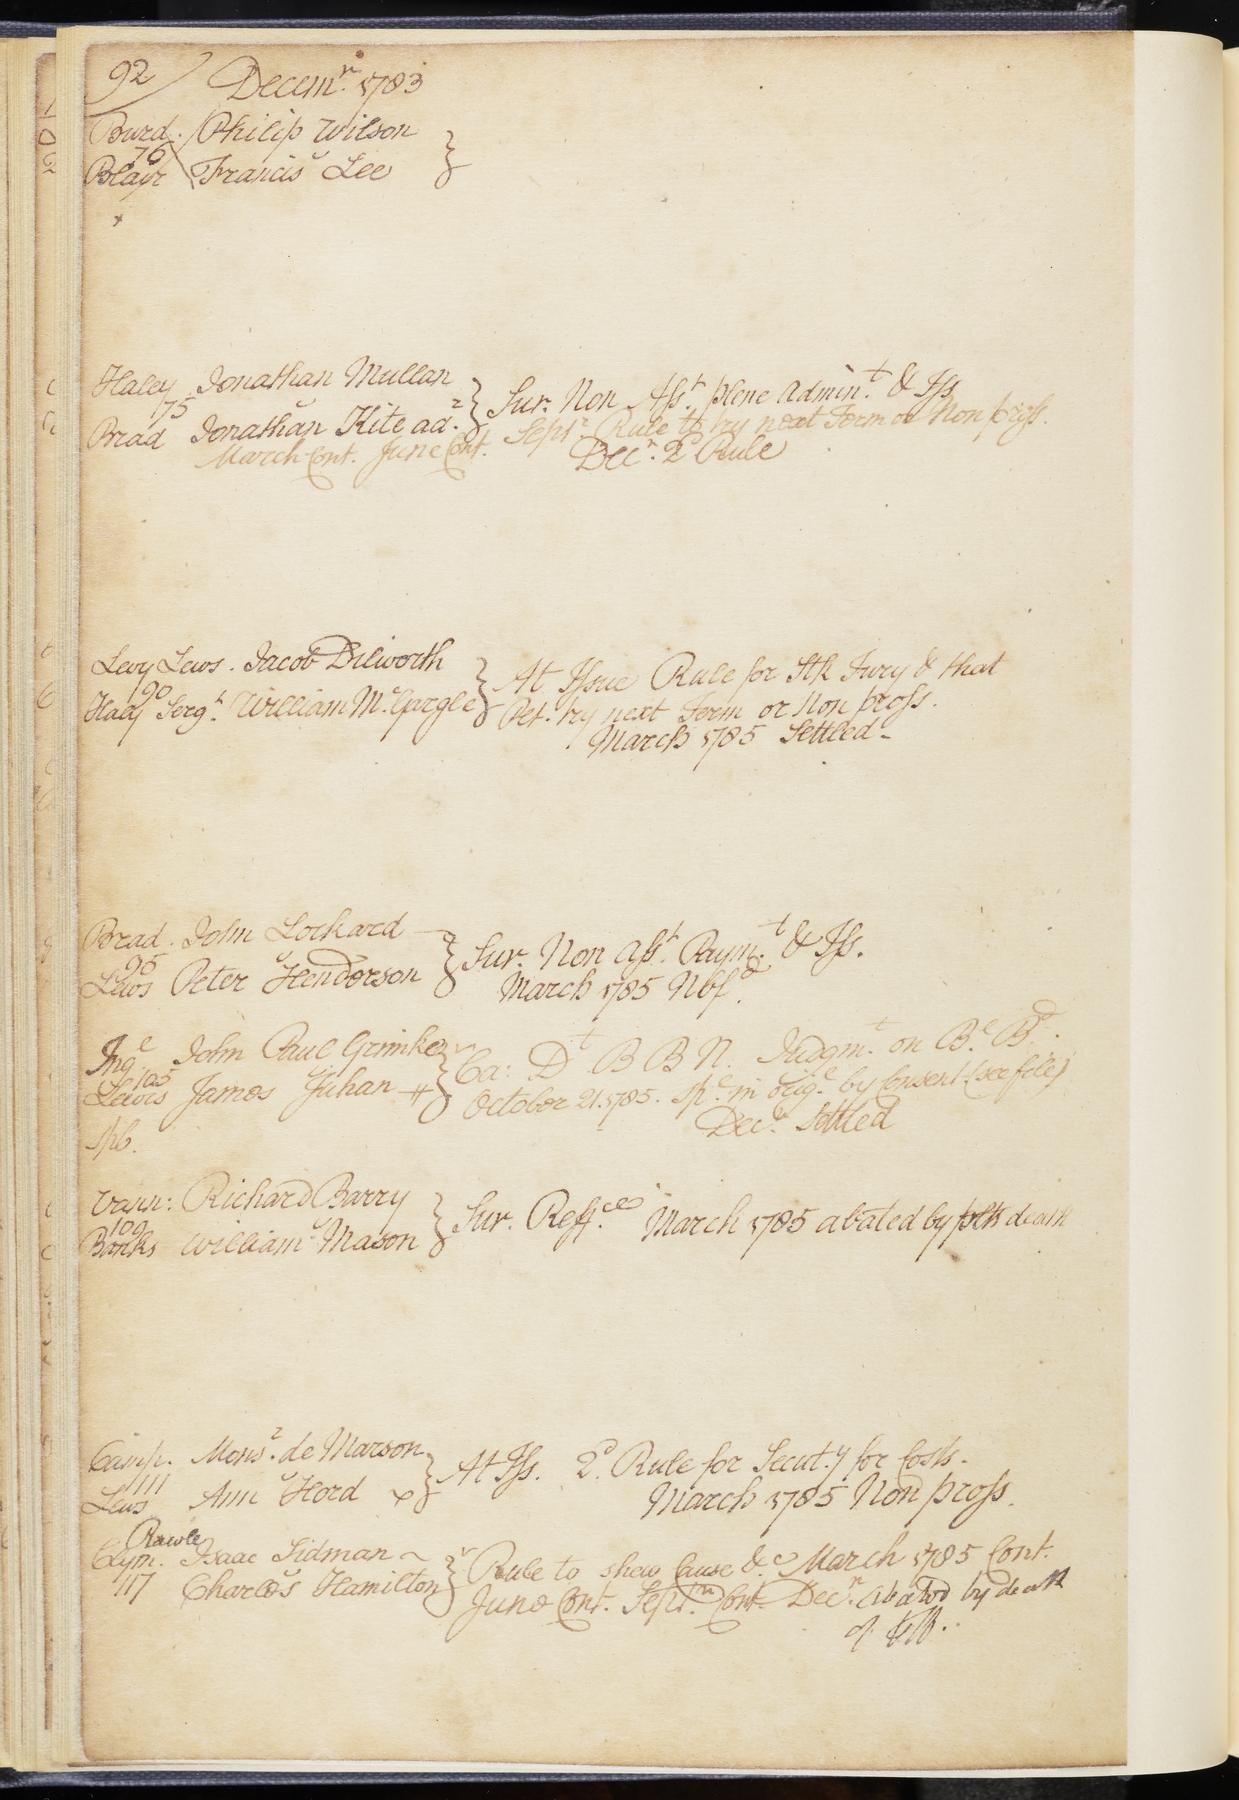 92 Decemr. 1783
Burd. Philip Wilson
76
Blair v Francis Lee
Haley Jonathan Mullan
75 v Sur. Non Asst. plene Admint. & Iss
Brad Jonathan Kite adr. Septr. Rule to try next Term or Non pross.
March Cont. June Cont. Decr. 2d Rule
Levy Lews. Jacob Dilworth
90 At Issue Rule for Stk Jury & that
Haly Sergt. William McGargle Pet. try next Term or Non pross.
March 1785 Settled
Brad. John Lockard
95 v Sur. Non Asst. Paymt. & Iss.
Lews Peter Henderson March 1785 Nbfd.
Inge John Paul Grimke
105 v Ca: Dt B B N. Judgmt. on Be. Bd.
Lewis James Juhan October 21. 1785. in orige. by Consent (see file)
Decr. Settled
Vann: Richard Barry
109 v Sur. Reffees March 1785 abated by plts death
Banks William Mason
Camp. Monsr. de Marson
111 v At Iss. 2d. Rule for Secuty for Costs.
Lews Ann Hord March 1785 Non pross.
Rawle
Clym. Isaac Sidman Rule to shew Cause &c March 1785 Cont.
117 v Charles Hamilton June Cont. Septr. Cont. Decr. abated by death
of